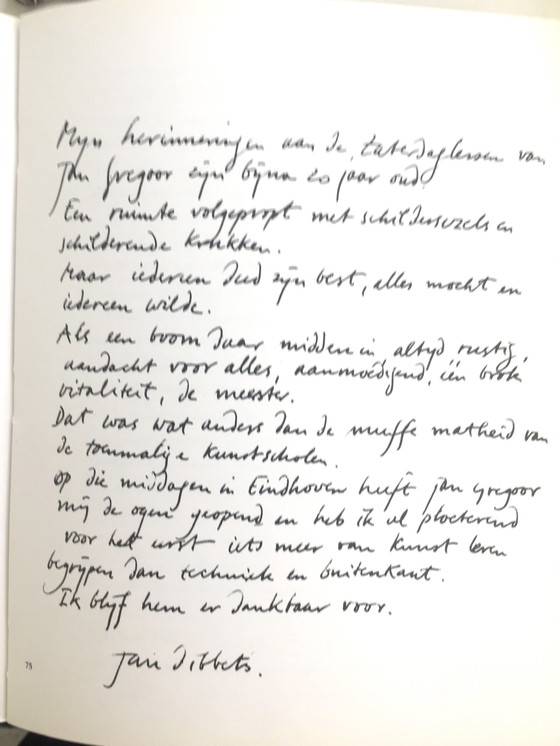 Mijn herinneringen aan de zaterdaglessen van
Jan Gregoor zijn bijna 20 jaar oud.
Een ruimte volgepropt met schildersezels en
schilderende krukken.
Maar iedereen deed zijn best, alles mocht en
iedereen wilde.
Als een boom daar midden in, altijd rustig,
aandacht voor alles, aanmoedigend, één brok
vitaliteit, de meester.
Dat was wat anders dan de muffe matheid van
de toenmalige kunstscholen.
Op die middagen in Eindhoven heeft Jan Gregoor
mij de ogen geopend en heb ik al ploeterend
voor het eerst iets meer van kunst leren
begrijpen dan techniek en buitenkant.
Ik blijf hem er dankbaar voor.
Jan Dibbets.
75